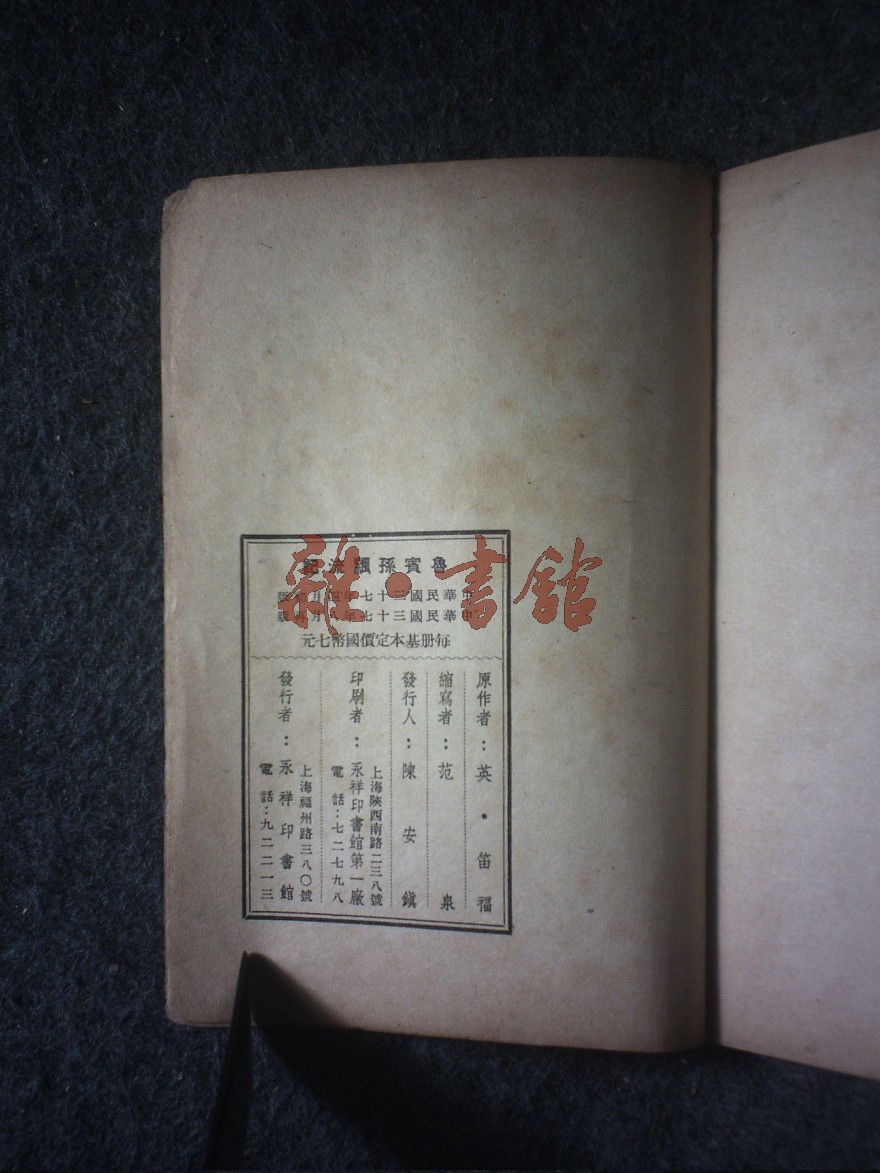 魯賓孫飄流記
中華民國三十七年四月初版
中華民國三十七年八月再版
每册基本定價國幣七元
原作者：英·笛福
縮寫者：范泉
發行人：陳安鎭
上海陝西南路二三八號
印刷者：永祥印書館第一廠
電話：七二七九八
上海福州路三八〇號
發行者：永祥印書館
電話：九二二一三
雜·書館